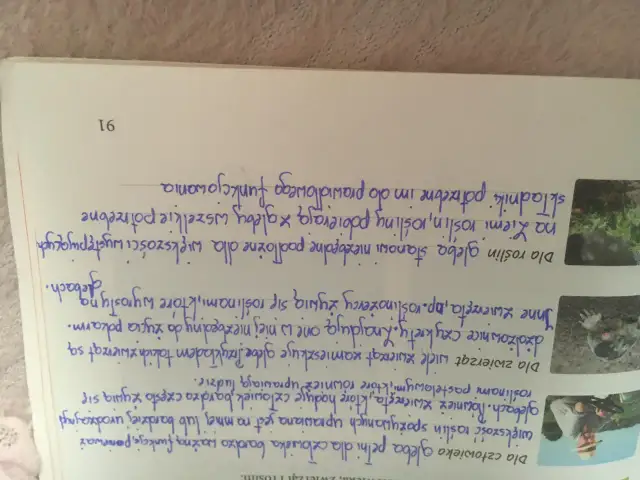 zwierząt i roślin.
Dla człowieka gleba pełni dla człowieka bardzo ważną funkcję, ponieważ
większość roślin spożywanych uprawiana jest na mniej lub bardziej urodzajnych
glebach. Również zwierzęta, które hoduje człowiek bardzo często żywią się
roślinami pastewnymi, które również uprawiają ludzie.
Dla zwierząt wiele zwierząt zamieszkuje glebę. Przykładem takich zwierząt są
dżdżownice czy krety. Znajdują one w niej niezbędny do życia pokarm.
Inne zwierzęta, np. roślinożercy żywią się roślinami, które wyrosły na
glebach.
Dla roślin gleba stanowi niezbędne podłoże dla większości występujących
na Ziemi roślin, rośliny pobierają z gleby wszelkie potrzebne
składniki potrzebne im do prawidłowego funkcjowania
91